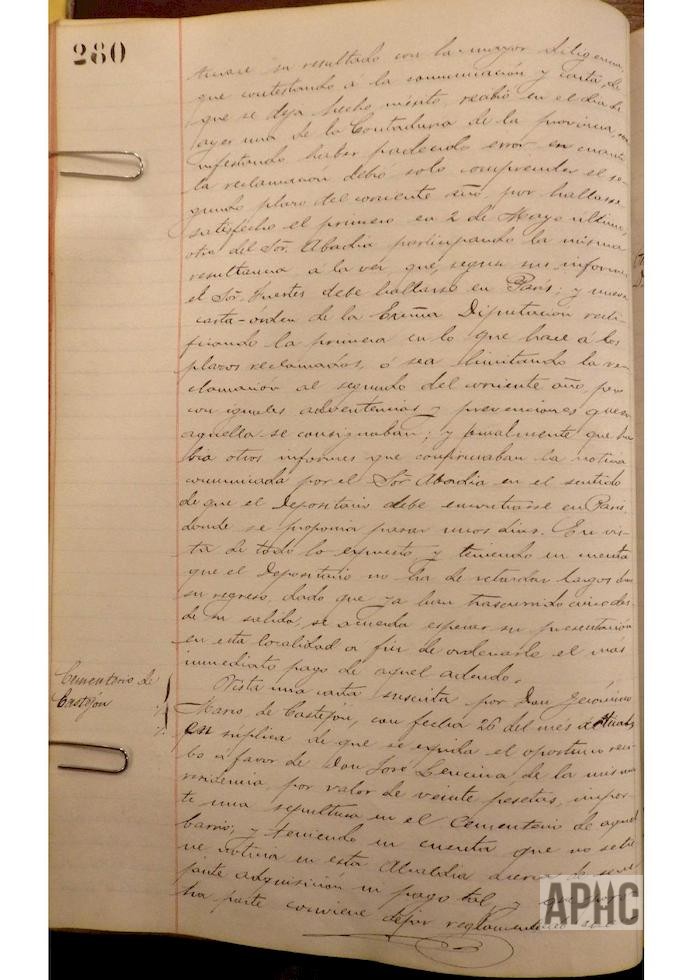 280
su resultado con la mayor diligencia,
que contestando á la comunicación y carta de
que se deja hecho mérito, recibió en el dia de
ayer una de la Contaduria de la provincia, ma-
nifestando haber padecido error en cuanto
la reclamacion debió solo comprender el se-
gundo plazo del corriente año, por hallarse
satisfecho el primero en 2 de Mayo último,
otra del Sor. Abadia participando la misma
resultancia, a la vez que, segun sus informes
el Sor. Fuertes debe hallarse en Paris; y nueva
carta-orden de la Exma Diputacion recti-
ficando la primera en lo que hace á los
plazos reclamados, ó sea limitando la re-
clamación al segundo del corriente año, pero
con iguales advertencias y prevenciones que en
aquella se consignaban; y finalmente que ha-
bia otros informes que confirmaban la noticia
comunicada por el Sor Abadia en el sentido
de que el Depositario debe encontrarse en Paris,
donde se proponia pasar unos dias. En vis-
ta de todo lo expuesto y teniendo en cuenta
que el Depositario no ha de retardar largos dias
su regreso, dado que ya han trascurrido cinco dias
de su salida, se acuerda esperar su presentación
en esta localidad a fin de ordenarle el mas
inmediato pago de aquel adeudo.
Cementerio de
Castejón
Vista una carta suscrita por Don Jerónimo
de Castejón, con fecha 26 del mes
en súplica de que se expida el oportuno reci-
bo á favor de Don José Lencina de la misma
residencia, por valor de veinte pesetas, impor-
te una sepultura en el Cementerio de aquel
barrio; y teniendo en cuenta que no se tie-
ne noticia en esta Alcaldia acerca de seme-
jante adquisición ni pago tal, y que por
parte conviene dejar
APHC